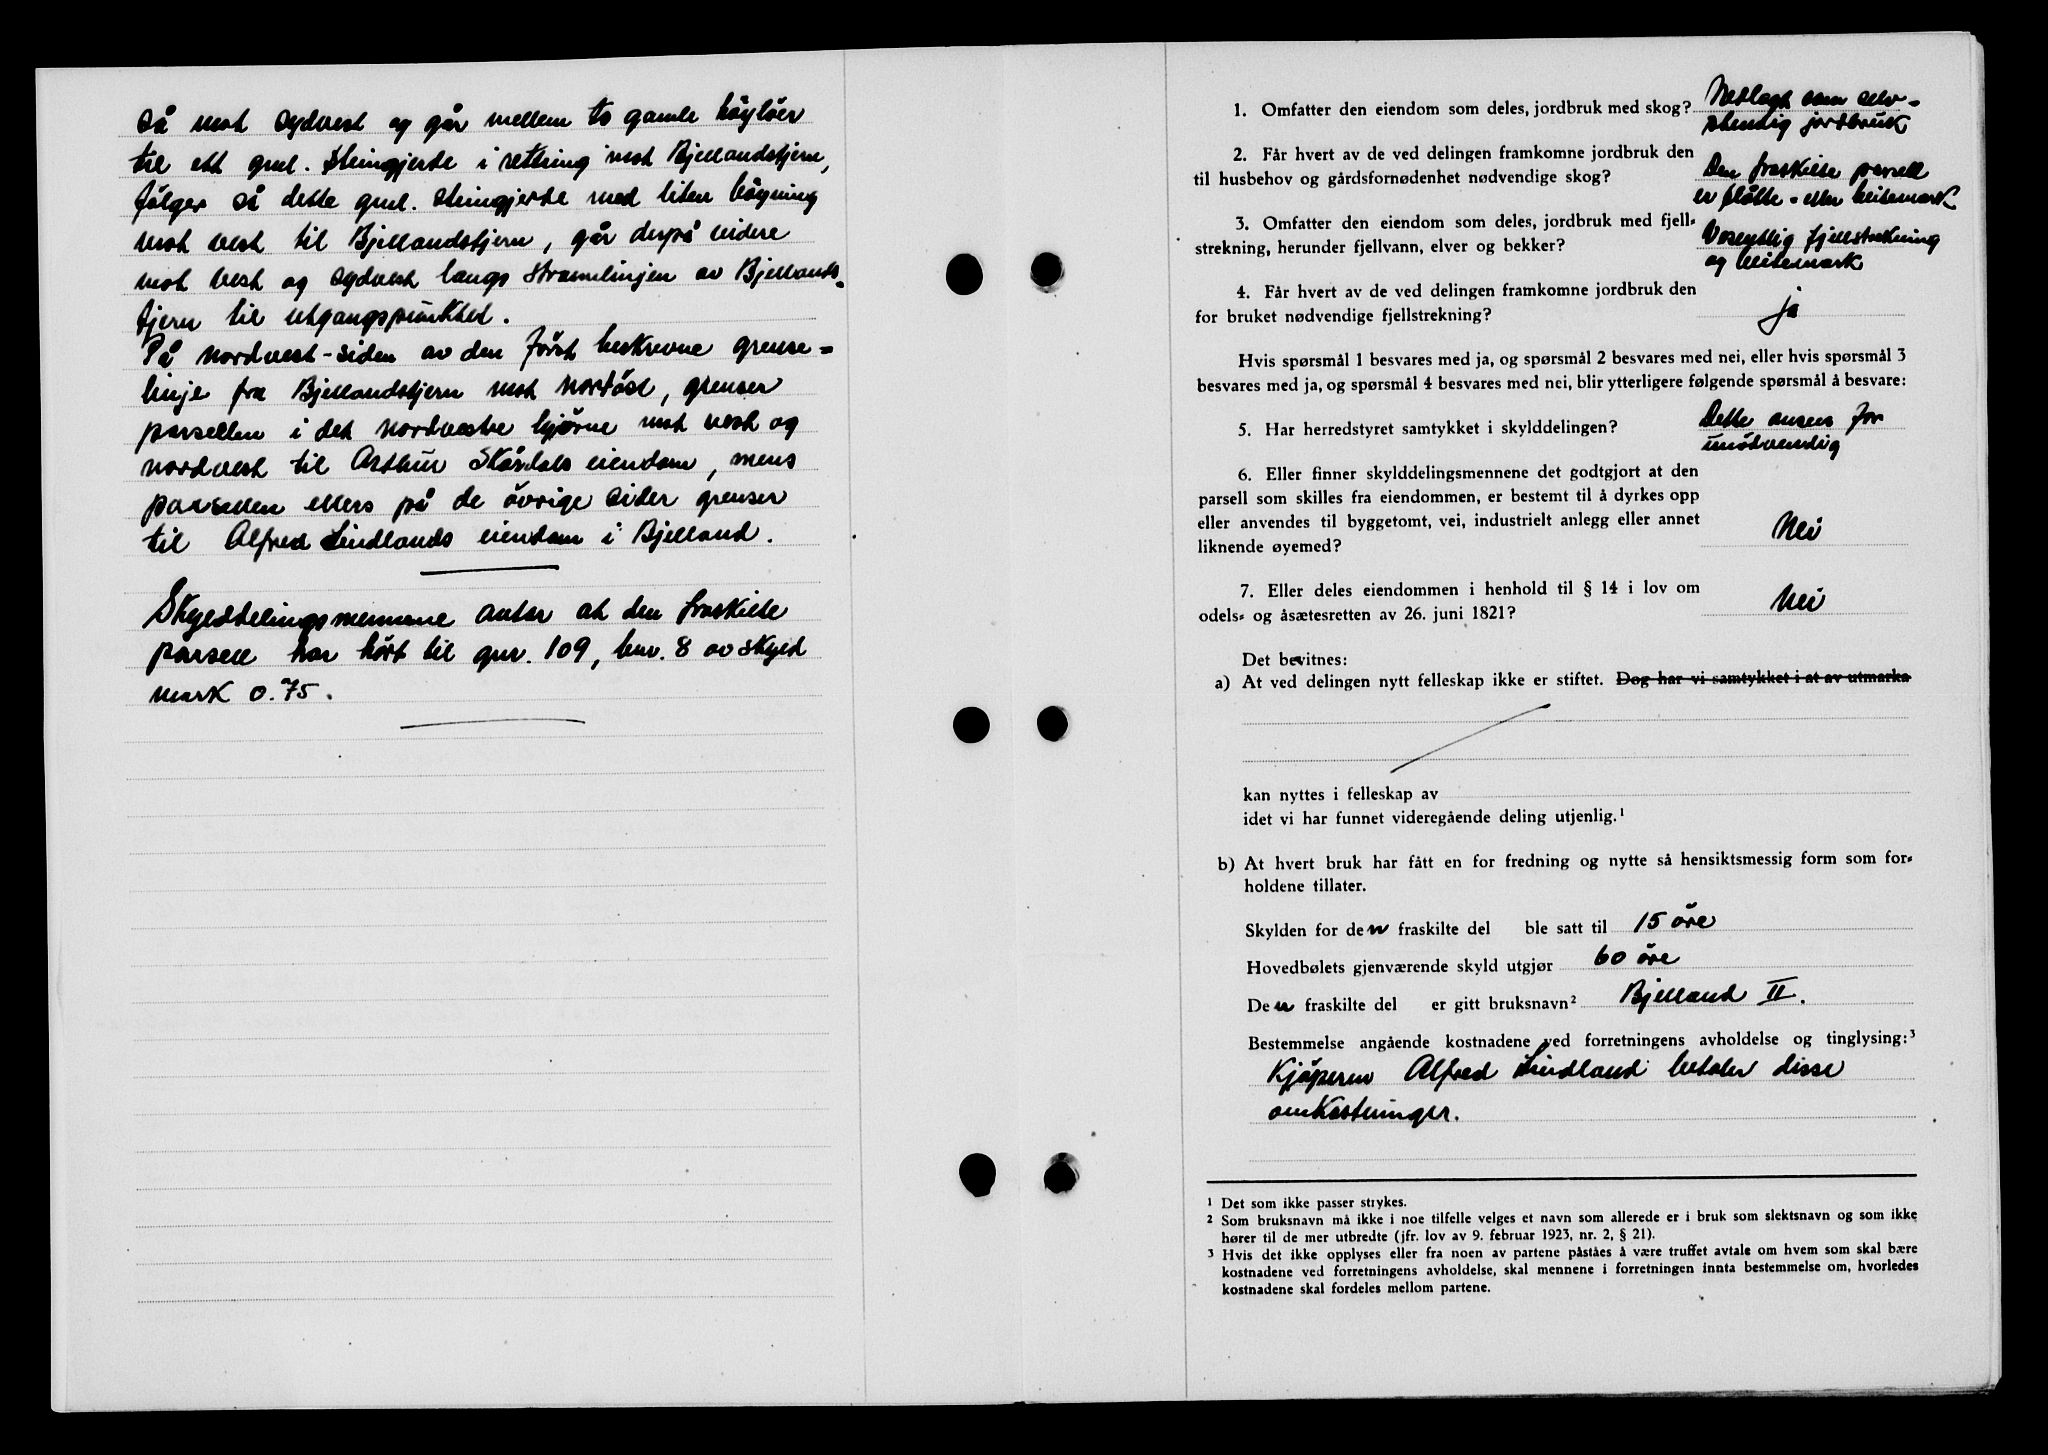 så mot sydvest og går mellem to gamle höylöer
til ett gml. steingjerde i rettning mot Bjellandstjern,
fölger så dette gml. steingjerde med liten böyning
mot vest til Bjellandstjern, går derpå videre
mot vest og sydvest langs strandlinjen av Bjellands-
tjern til utgangspunktet.
På nordvest-siden av den först beskrevne grense-
linje fra Bjellandstjern mot nordöst, grenser
parsellen i det nordvestre hjörne mot vest og
nordvest til Arthur Skårdals eiendom, mens
parsellen ellers på de övrige sider grenser
til Alfred Lindlands eiendom i Bjelland.
Skylddelingsmennene antar at den fraskilte
parsell har hört til gnr. 109, bnr. 8 av skyld
mark 0.75.
1. Omfatter den eiendom som deles, jordbruk med skog? Nedlagt som selv-
stendig jordbruk
2. Får hvert av de ved delingen framkomne jordbruk den
til husbehov og gårdsfornødenhet nødvendige skog?
Den fraskilte parsell
er slåtte- eller beitemark
3. Omfatter den eiendom som deles, jordbruk med fjell-
strekning, herunder fjellvann, elver og bekker?
Vesentlig fjellstrekning
og beitemark
4. Får hvert av de ved delingen framkomne jordbruk den
for bruket nødvendige fjellstrekning? ja
Hvis spørsmål 1 besvares med ja, og spørsmål 2 besvares med nei, eller hvis spørsmål 3
besvares med ja, og spørsmål 4 besvares med nei, blir ytterligere følgende spørsmål å besvare:
5. Har herredstyret samtykket i skylddelingen? Dette anses for
unödvendig
6. Eller finner skylddelingsmennene det godtgjort at den
parsell som skilles fra eiendommen, er bestemt til å dyrkes opp
eller anvendes til byggetomt, vei, industrielt anlegg eller annet
liknende øyemed? Nei
7. Eller deles eiendommen i henhold til § 14 i lov om
odels- og åsætesretten av 26. juni 1821? Nei
Det bevitnes:
a) At ved delingen nytt felleskap ikke er stiftet. Dog har vi samtykket i at av utmarka
kan nyttes i felleskap av
idet vi har funnet videregående deling utjenlig.¹
b) At hvert bruk har fått en for fredning og nytte så hensiktsmessig form som for-
holdene tillater.
Skylden for den fraskilte del ble satt til 15 öre
Hovedbølets gjenværende skyld utgjør 60 öre
Den fraskilte del er gitt bruksnavn² Bjelland II.
Bestemmelse angående kostnadene ved forretningens avholdelse og tinglysing:³
Kjöperen Alfred Lindland betaler disse
omkostninger.
¹ Det som ikke passer strykes.
² Som bruksnavn må ikke i noe tilfelle velges et navn som allerede er i bruk som slektsnavn og som ikke
hører til de mer utbredte (jfr. lov av 9. februar 1923, nr. 2, § 21).
³ Hvis det ikke opplyses eller fra noen av partene påståes å være truffet avtale om hvem som skal bære
kostnadene ved forretningens avholdelse, skal mennene i forretningen innta bestemmelse om, hvorledes
kostnadene skal fordeles mellom partene.